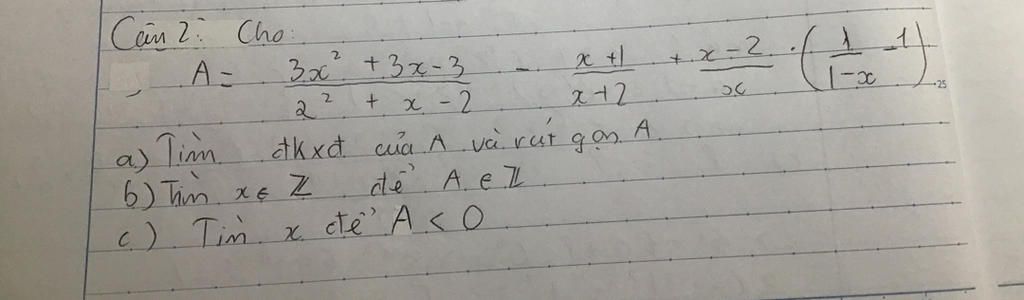 Câu 2: Cho:
A = \frac{3x^2 + 3x - 3}{2^2 + x - 2} - \frac{x+1}{x+2} + \frac{x-2}{x} \cdot \left(\frac{1}{1-x} - 1\right)
25
a) Tìm đkxđ của A và rút gọn A.
b) Tìm x ∈ Z để A ∈ Z
c) Tìm x để A < 0